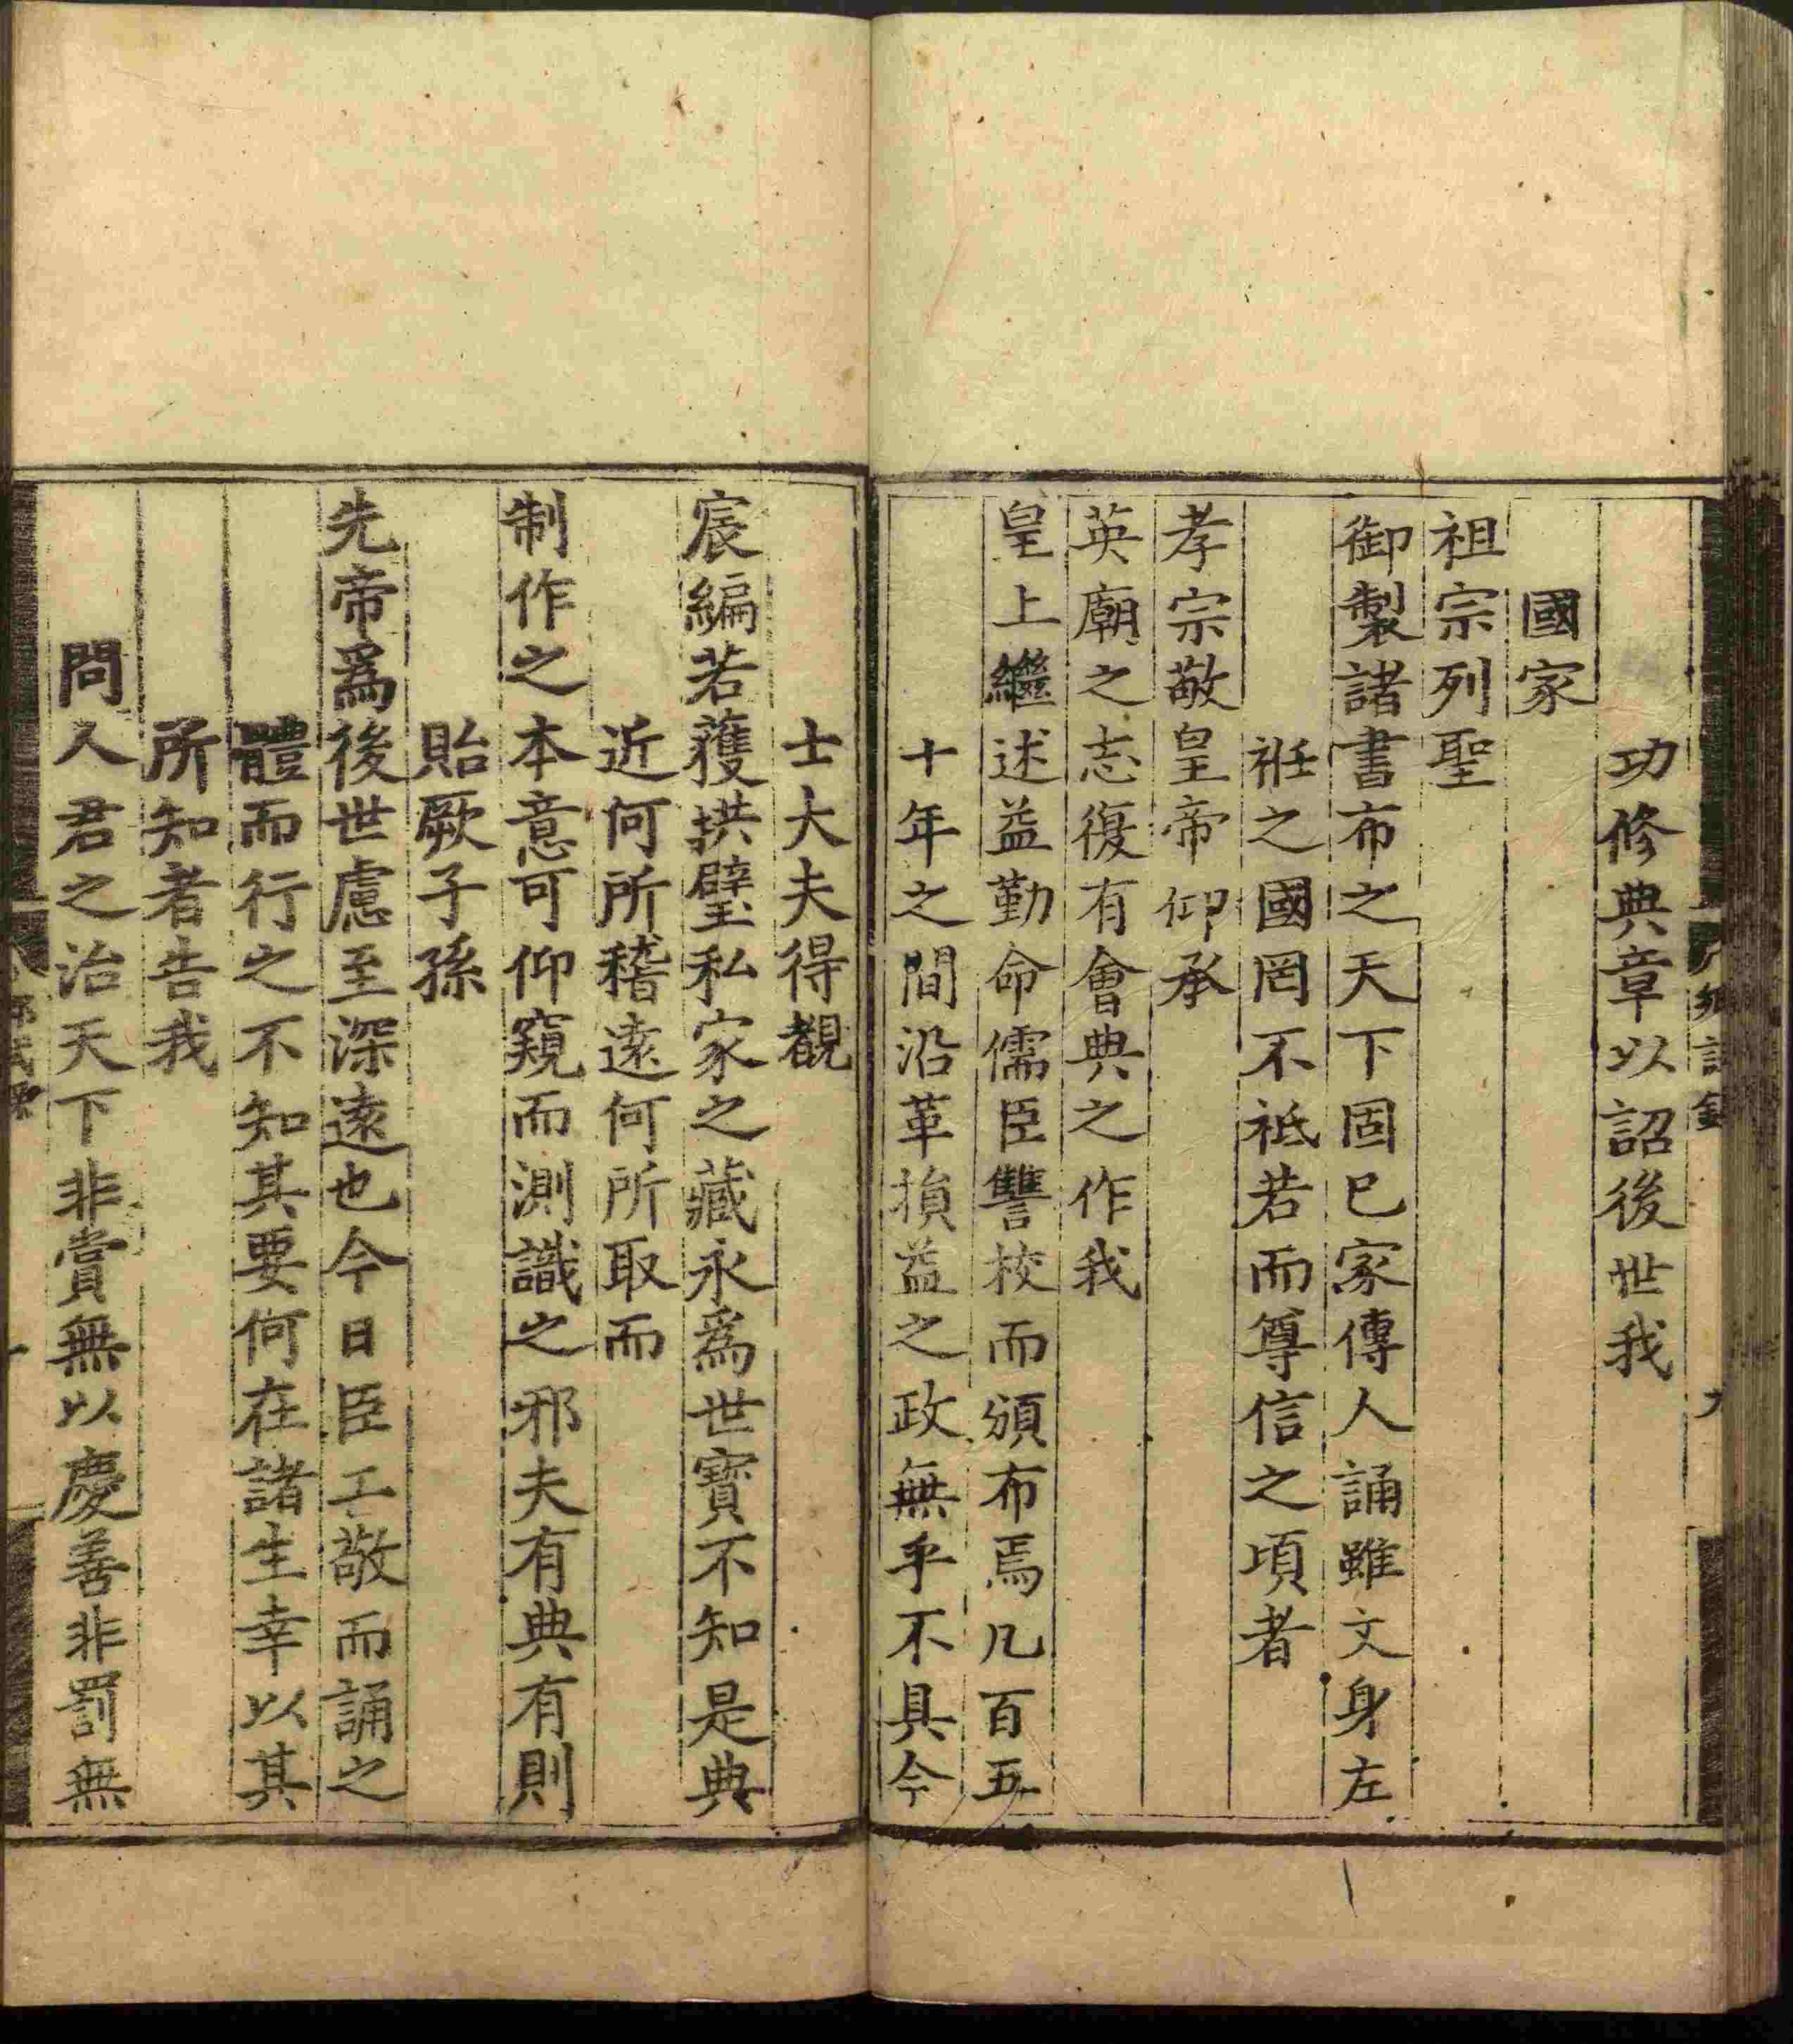 功修典章以詔後世我
國家
祖宗列聖
御製諸書布之天下固已家傳人誦雖文身左
袵之國罔不祗若而尊信之項者
孝宗敬皇帝仰承
英廟之志復有會典之作我
皇上繼述益勤命儒臣讐校而頒布焉凡百五
十年之間沿革損益之政無乎不具今
士大夫得覩
宸編若蒦拱璧私家之藏永爲世寶不知是典
近何所稽遠何所取而
制作之本意可仰窺而測識之邪夫有典有則
貽厥子孫
先帝爲後世慮至深遠也今日臣工敬而誦之
體而行之不知其要何在諸生幸以其
所知者告我
問人君之治天下非賞無以慶善非罰無